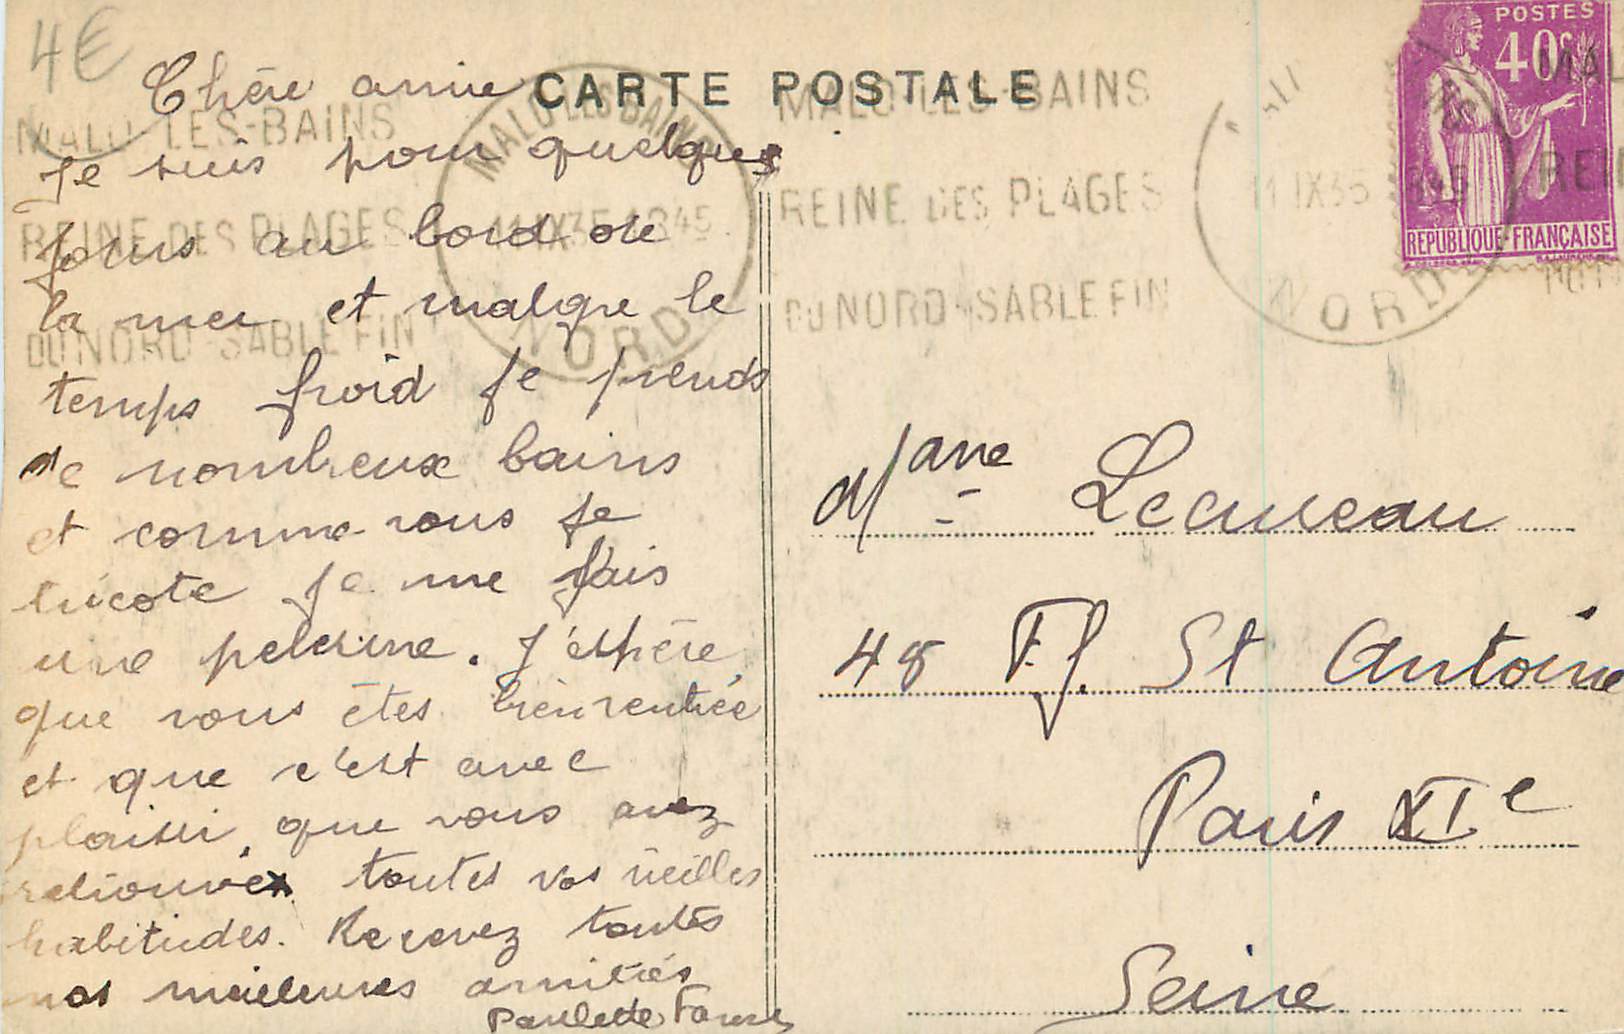 4€
CARTE POSTALE
Chère amie
Je suis pour quelques
jours au bord de
la mer et malgre le
temps froid je prends
de nombreux bains
et comme vous je
tricote je me fais
une pelerine. J'espère
que vous êtes bien rentrée
et que c'est avec
plaisir que vous avez
retrouvé toutes vos vieilles
habitudes. Recevez toutes
nos meilleures amitiés
Paulette
MALO-LES-BAINS
REINE DES PLAGES
DU NORD-SABLE FIN
MALO-LES-BAINS
11 IX 35 1845
NORD
MALO-LES-BAINS
REINE DES PLAGES
DU NORD-SABLE FIN
11 IX 35
NORD
POSTES
40c
REPUBLIQUE-FRANÇAISE
MAL
REIN
Mme Lecureau
48 Fg. St Antoine
Paris XIe
Seine